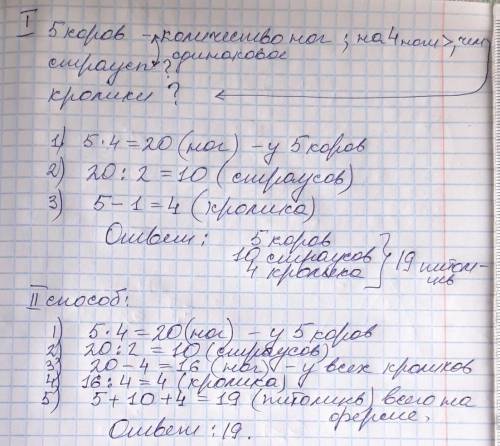 I
5 коров - количество ног ; на 4 ноги >, чем
страусы ? одинаковое
кролики ?
1) 5 · 4 = 20 (ног) - у 5 коров
2) 20 : 2 = 10 (страусов)
3) 5 - 1 = 4 (кролика)
Ответ : 5 коров
10 страусов
4 кролика } 19 питом-
цев
II способ:
1) 5 · 4 = 20 (ног) - у 5 коров
2) 20 : 2 = 10 (страусов)
3) 20 - 4 = 16 (ног) - у всех кроликов
4) 16 : 4 = 4 (кролика)
5) 5 + 10 + 4 = 19 (питомцев) всего на
ферме.
Ответ : 19.